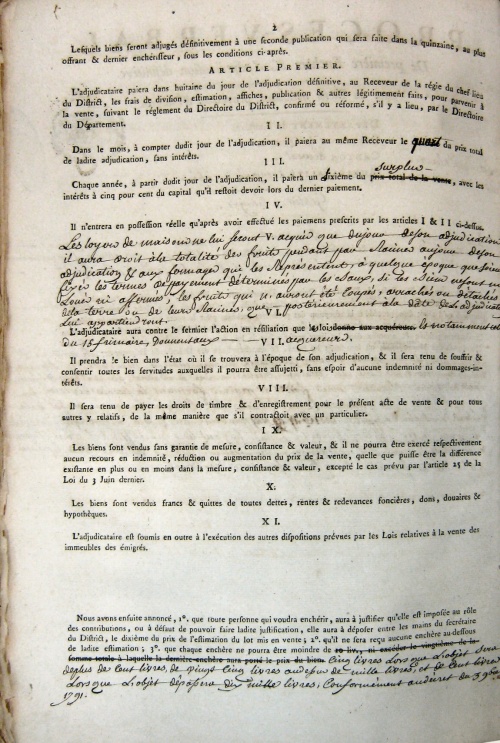 2
Lesquels biens seront adjugés définitivement à une seconde publication qui sera faite dans la quinzaine, au plus
offrant & dernier enchérisseur, sous les conditions ci-après.
ARTICLE PREMIER.
L'adjudicataire paiera dans huitaine du jour de l'adjudication définitive, au Receveur de la régie du chef-lieu
du District, les frais de division, estimation, affiches, publication & autres légitimement faits, pour parvenir à
la vente, suivant le réglement du Directoire du District, confirmé ou réformé, s'il y a lieu, par le Directoire
du Département.
II.
Dans le mois, à compter dudit jour de l'adjudication, il paiera au même Receveur le quart du prix total
de ladite adjudication, sans intérêts.
III.
surplus
Chaque année, à partir dudit jour de l'adjudication, il paiera un sixième du prix total de la vente, avec les
intérêts à cinq pour cent du capital qu'il restoit devoir lors du dernier paiement.
IV.
Il n'entrera en possession réelle qu'après avoir effectué les paiemens prescrits par les articles I & II ci-dessus.
Les loyers de maisons ne lui seront acquis que du jour de son adjudication
il aura droit à la totalité des fruits pendant par Racines au jour de son
adjudication & aux fermages qui les Représentent, à quelque époque que soient
fixés les termes de payement déterminés par les baux, si les biens ne sont ni
Loués ni affermés, les fruits qui n'auront été coupés, arrachés ou détachés
de la terre ou de leurs Racines, que postérieurement à la date de l'adjudication
lui appartiendront.
V.
VI.
L'adjudicataire aura contre le fermier l'action en résiliation que les lois donne aux acquéreurs, et notamment celle
du 15 frimaire, donnent aux acquéreurs.
VII.
Il prendra le bien dans l'état où il se trouvera à l'époque de son adjudication, & il sera tenu de souffrir &
consentir toutes les servitudes auxquelles il pourra être assujetti, sans espoir d'aucune indemnité ni dommages-
intérêts.
VIII.
Il sera tenu de payer les droits de timbre & d'enregistrement pour le présent acte de vente & pour tous
autres y relatifs, de la même manière que s'il contractoit avec un particulier.
IX.
Les biens sont vendus sans garantie de mesure, consistance & valeur, & il ne pourra être exercé respectivement
aucun recours en indemnité, réduction ou augmentation du prix de la vente, quelle que puisse être la différence
existante en plus ou en moins dans la mesure, consistance & valeur, excepté le cas prévu par l'article 25 de la
Loi du 3 Juin dernier.
X.
Les biens sont vendus francs & quittes de toutes dettes, rentes & redevances foncières, dons, douaires &
hypothèques.
XI.
L'adjudicataire est soumis en outre à l'exécution des autres dispositions prévues par les Lois relatives à la vente des
immeubles des émigrés.
Nous avons ensuite annoncé, 1°. que toute personne qui voudra enchérir, aura à justifier qu'elle est imposée au rôle
des contributions, ou à défaut de pouvoir faire ladite justification, elle aura à déposer entre les mains du secrétaire
du District, le dixième du prix de l'estimation du lot mis en vente; 2°. qu'il ne sera reçu aucune enchère au-dessous
de ladite estimation; 3°. que chaque enchère ne pourra être moindre de 10 liv., ni excéder le vingtième de la
somme totale à laquelle la dernière enchère aura porté le prix du bien cinq livres lorsque l'objet sera
de plus de cent livres, de vingt cinq livres au dessus de mille livres, et de cent livres
lorsque l'objet dépassera dix mille livres, conformément au décret du 3 9bre
1791.